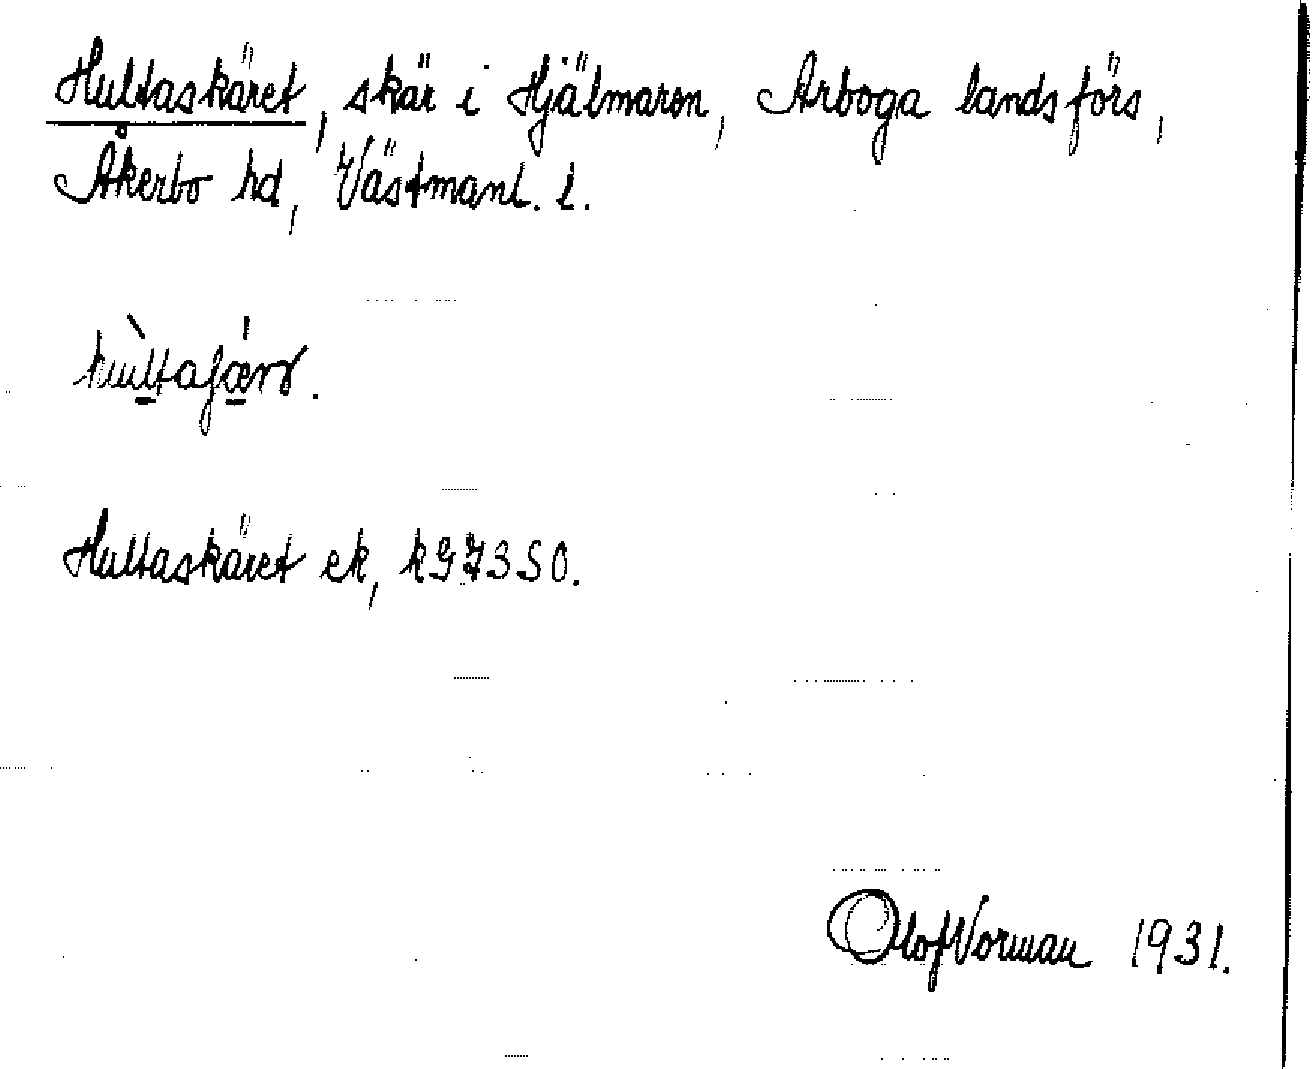 Hultaskäret, skär i Hjälmaren, Arboga landsförs,
Åkerbo hd, Västmanl. l.
Hultaskäret ek, k97350.
Olof Norman 1931.